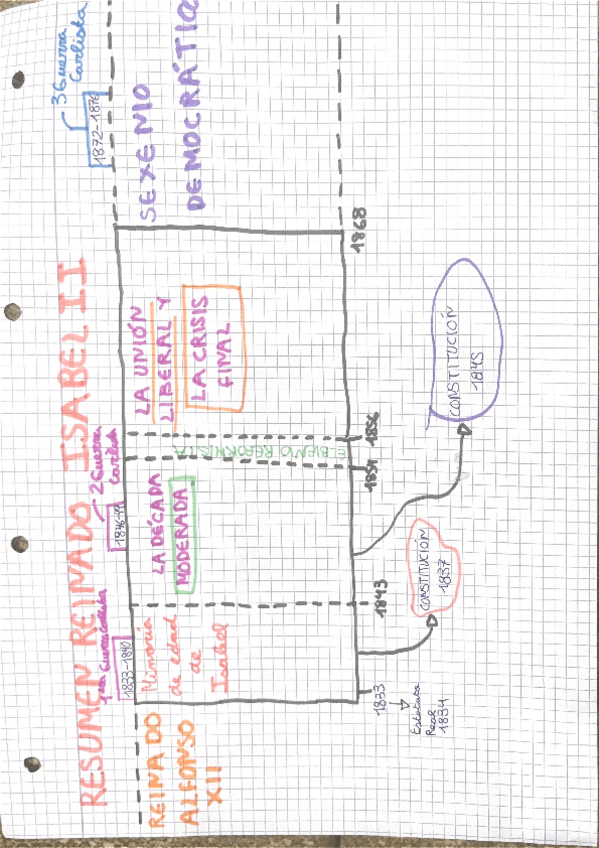 RESUMEN REINADO ISABEL II
1ra Guerra Carlista
1833-1840
2 Guerra
Carlista
1846-49
3 Guerra
Carlista
1872-1876
REINADO
ALFONSO
XII
Minoria
de edad
de
Isabel
LA DÉCADA
MODERADA
EL BIENIO REFORMISTA
LA UNIÓN
LIBERAL Y
LA CRISIS
FINAL
SEXENIO
DEMOCRÁTIC
1833
1843
1854
1856
1868
Estatuto
Real
1834
CONSTITUCIÓN
1837
CONSTITUCIÓN
1845